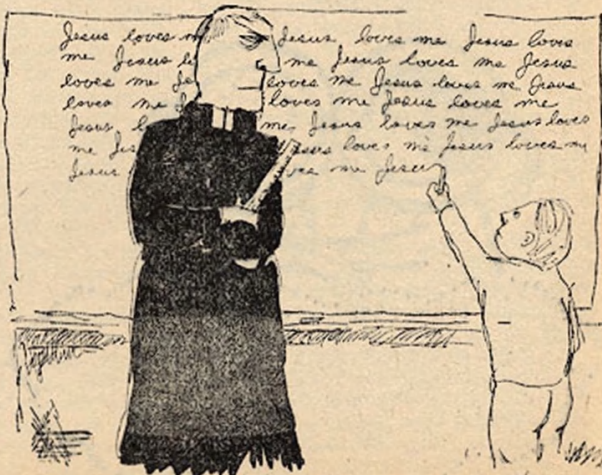 Jesus loves m Jesus loves me Jesus loves
me Jesus l me Jesus loves me Jesus
loves me Je loves me Jesus loves me Jesus
loves me J loves me Jesus loves me
Jesus l me Jesus loves me Jesus loves
me Jes esus loves me Jesus loves me
Jesus ves me Jesus